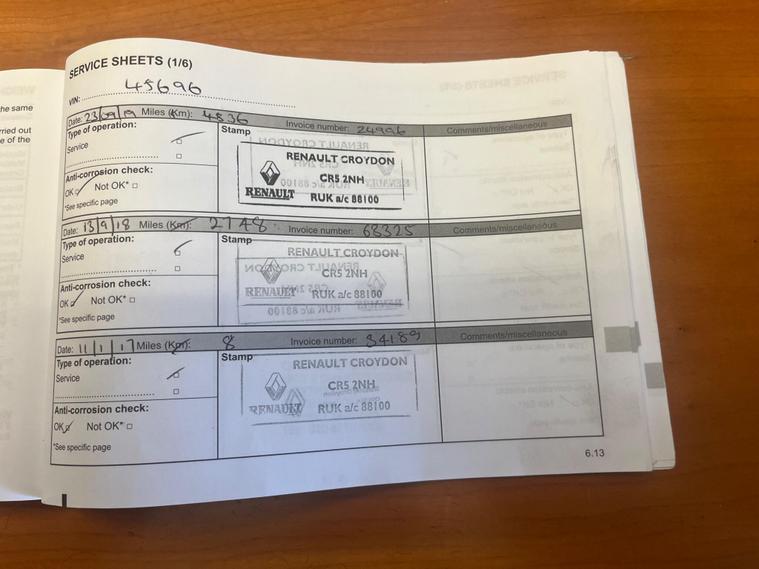 he same
rried out
e of the
SERVICE SHEETS (1/6)
VIN: 45696
Date: 23/09/19 Miles (Km): 4836 Invoice number: 24996 Comments/miscellaneous
Type of operation:
Service
Stamp
RENAULT CROYDON
CR5 2NH
RENAULT RUK a/c 88100
Anti-corrosion check:
OK Not OK*
*See specific page
Date: 13/9/18 Miles (Km): 2748 Invoice number: 68325 Comments/miscellaneous
Type of operation:
Service
Stamp
RENAULT CROYDON
CR5 2NH
RENAULT RUK a/c 88100
Anti-corrosion check:
OK Not OK*
*See specific page
Date: 11/1/17 Miles (Km): 8 Invoice number: 34189 Comments/miscellaneous
Type of operation:
Service
Stamp
RENAULT CROYDON
CR5 2NH
RENAULT RUK a/c 88100
Anti-corrosion check:
OK Not OK*
*See specific page
6.13